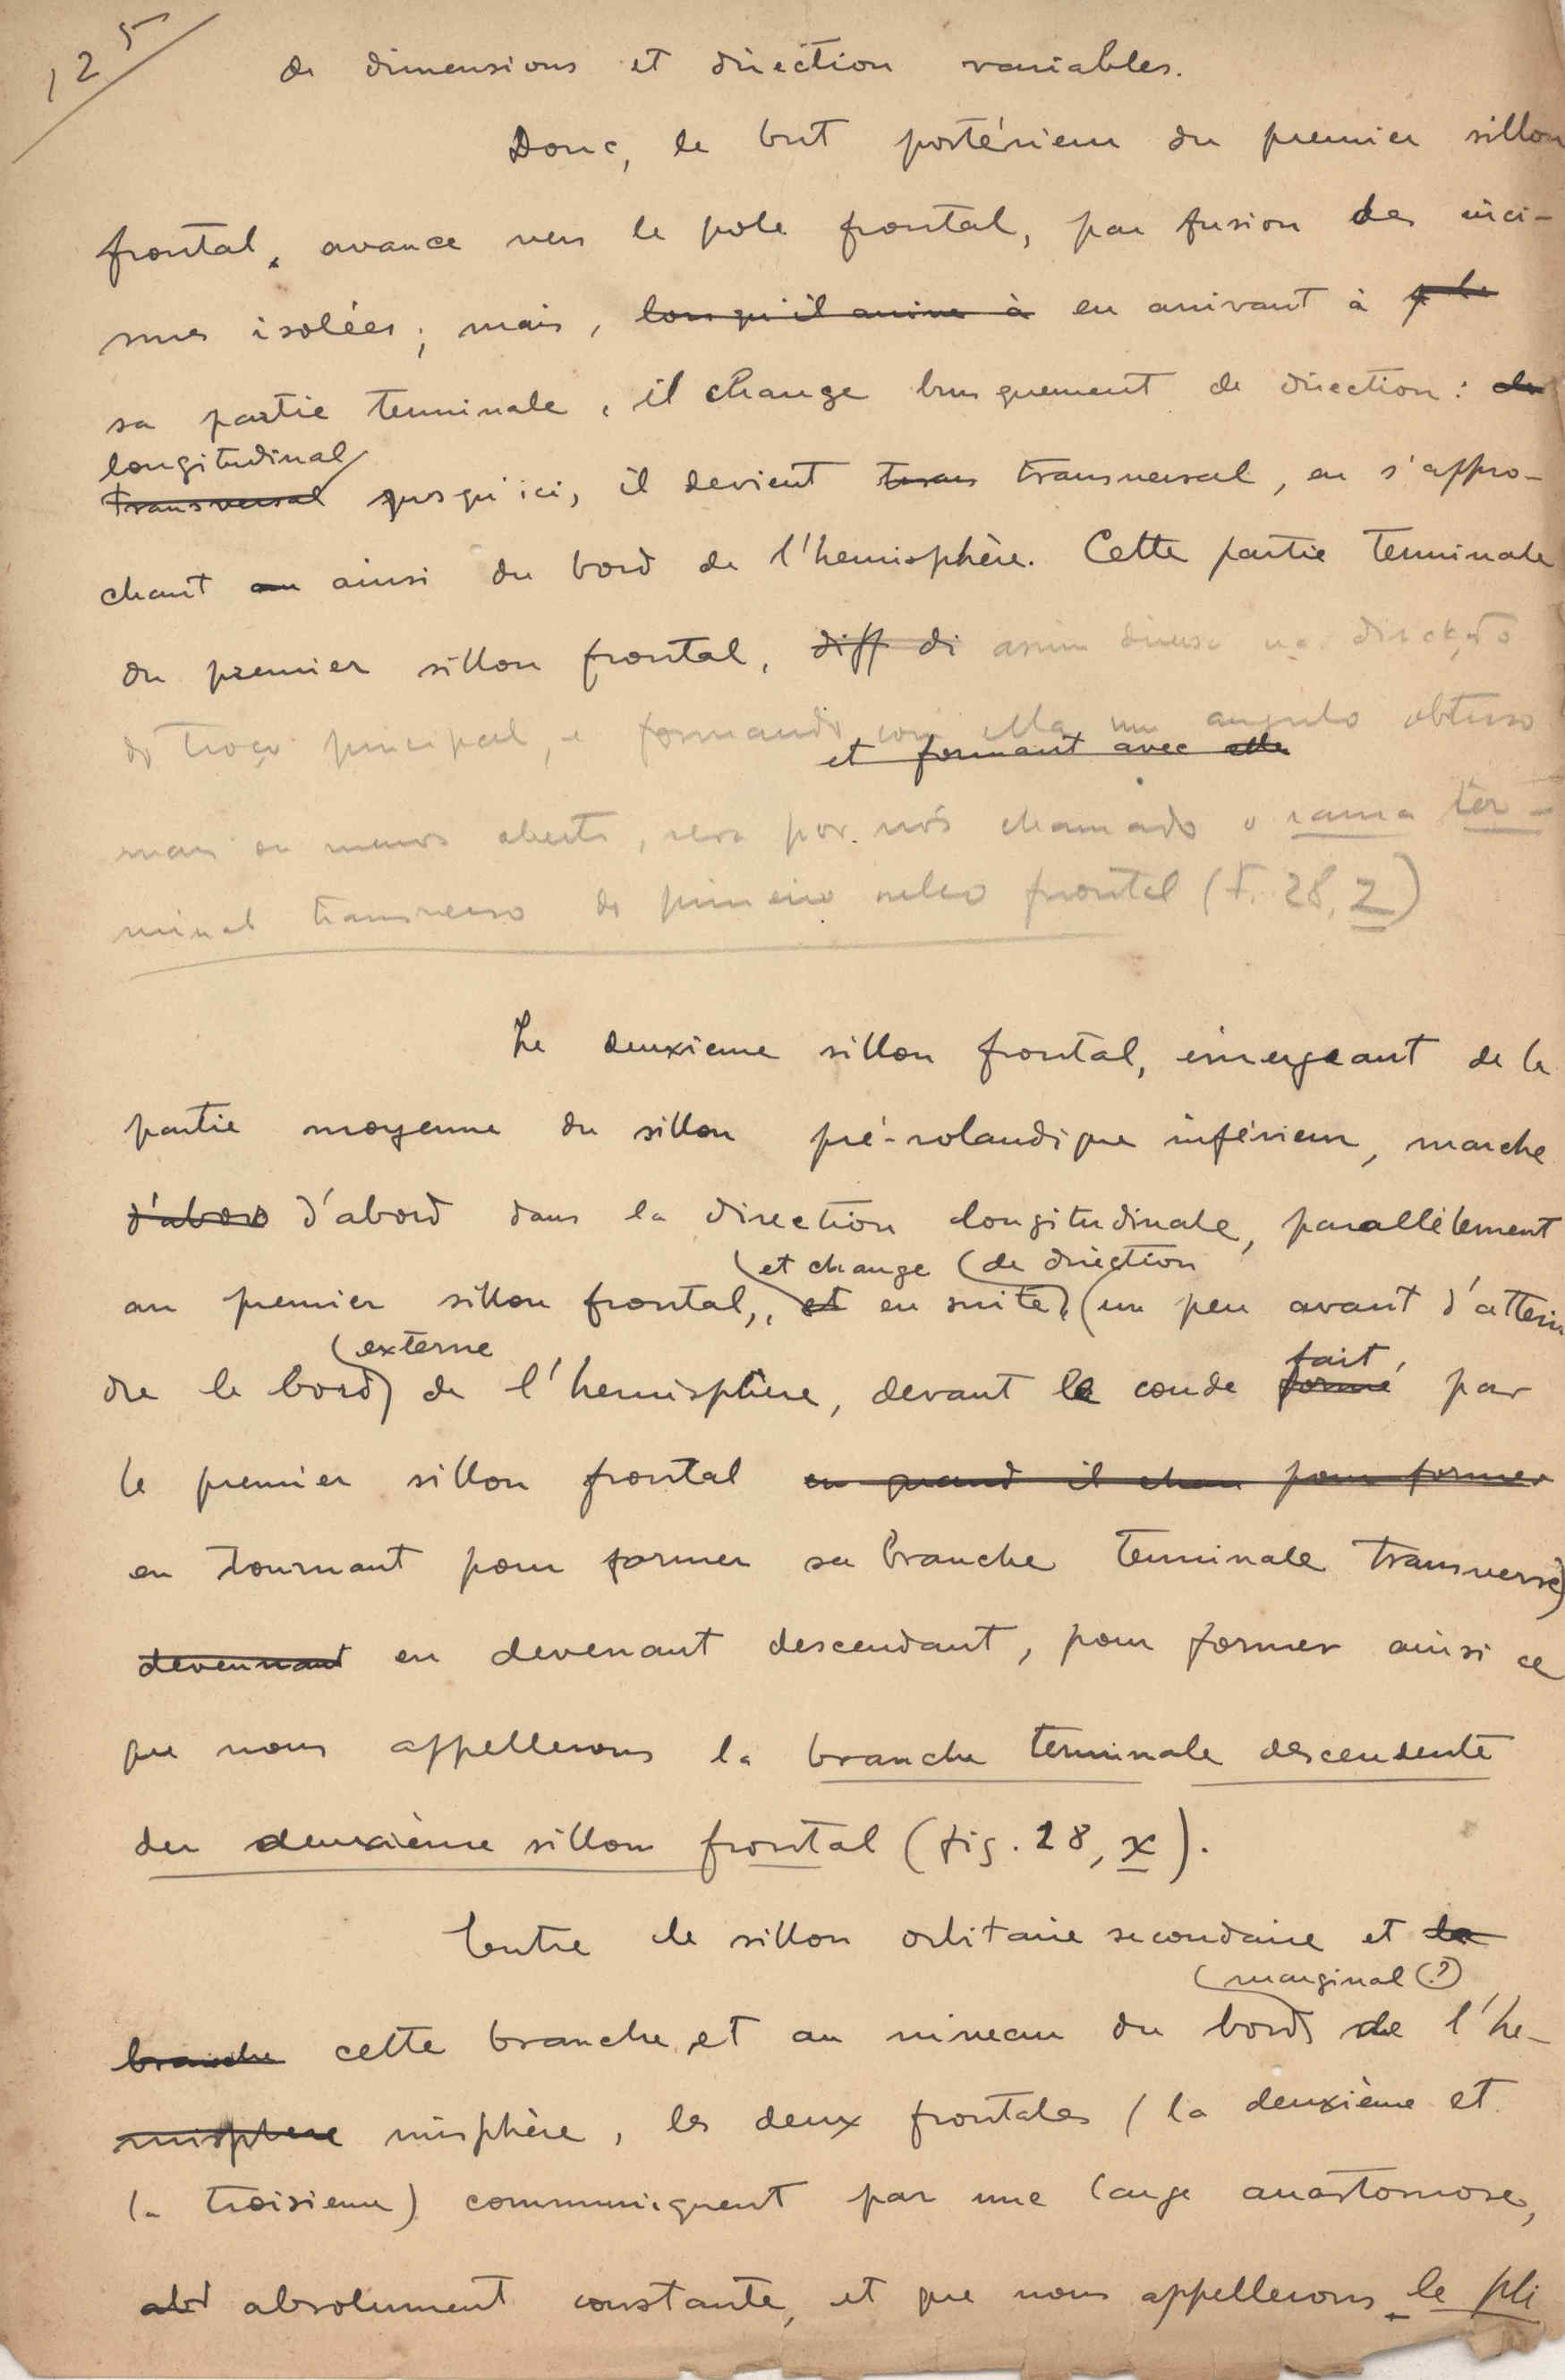 125
de dimensions et direction variables.
Donc, le but postérieur du premier sillon
frontal, avance vers le pole frontal, par fusion des inci-
sures isolées; mais, lorsqu'il arrive à en arrivant à
sa partie terminale, il change brusquement de direction: de
longitudinal
transversal jusqu'ici, il devient trans transversal, en s'appro-
chant au ainsi du bord de l'hemisphère. Cette partie terminale
du premier sillon frontal, diff di assim diversa na direcção
do troço principal, e formando com ella um angulo obtuso
et formant avec elle
mais ou menos aberto, sera por nós chamado o ramo ter-
minal transverso do primeiro sulco frontal (F. 28, z)
Le deuxieme sillon frontal, émergeant de la
partie moyenne du sillon pré-rolandique inférieur, marche
d'abord d'abord dans la direction longitudinale, parallèlement
et change de direction
au premier sillon frontal, et en suite, (un peu avant d'attein
externe
fait,
dre le bord de l'hemisphère, devant le coude formé par
le premier sillon frontal en quand il chan pour former
en tournant pour former sa branche terminale transverse)
devennant en devenant descendant, pour former ainsi ce
que nous appellerons la branche terminale descendente
du deuxième sillon frontal (fig. 28, x).
Entre le sillon orbitaire secondaire et la
marginal (?)
branche cette branche, et au niveau du bord de l'he-
misphere misphère, les deux frontales (la deuxième et
la troisieme) communiquent par une large anastomose,
abs absolument constante, et que nous appellerons le pli